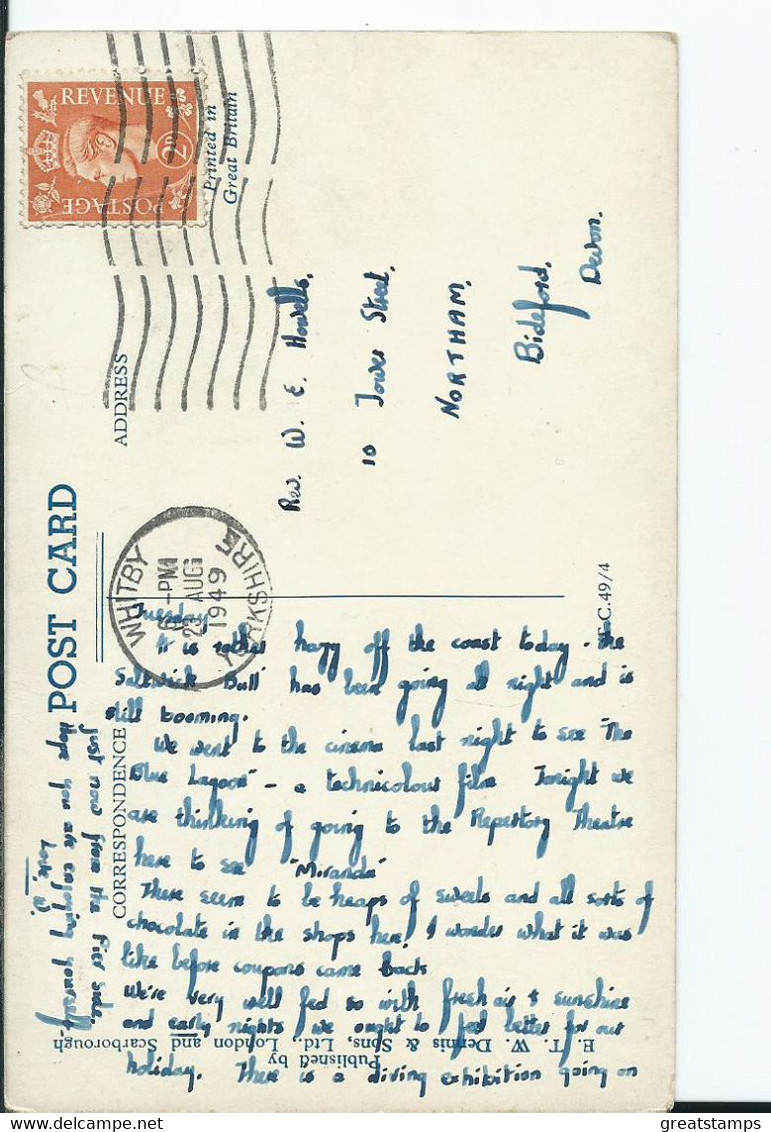 POST CARD
CORRESPONDENCE
ADDRESS
Printed in
Great Britain
REVENUE
POSTAGE
2D
WHITBY
6-PM
23 AUG
1949
YORKSHIRE
Rev. W. E. Howells,
10 Tower Street,
NORTHAM,
Bideford,
Devon.
C.49/4
Tuesday
It is rather hazy off the coast today - the
Saltwick Bull has been going all night and is
still booming.
We went to the cinema last night to see "The
Blue Lagoon" - a technicolour film. Tonight we
are thinking of going to the Repertory Theatre
here to see "Miranda"
There seem to be heaps of sweets and all sorts of
chocolate in the shops here! I wonder what it was
like before coupons came back
We're very well fed so with fresh air & sunshine
and early nights we ought to feel better for our
holiday. There is a diving exhibition going on
just now from the Pier side.
Hope you are enjoying yourself.
Love, W.
Published by
E. T. W. Dennis & Sons, Ltd., London and Scarborough
greatstamps